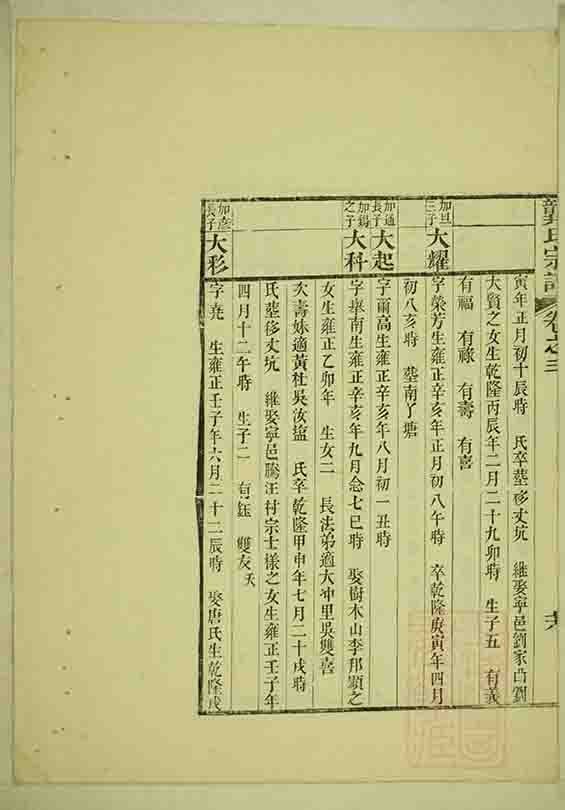 龔氏宗譜 卷之三
寅年正月初十辰時 氏卒塟移丈坑 繼娶寧邑劉家凸劉
大賢之女生乾隆丙辰年二月二十九卯時 生子五 有義
有福 有祿 有壽 有喜
加旦三子 大耀 字榮芳生雍正辛亥年正月初八午時 卒乾隆庚寅年四月
初八亥時 塟南丫塘
加通長子 大起 字爾高生雍正辛亥年八月初一丑時
加錫之子 大科 字舉南生雍正辛亥年九月念七巳時 娶樹木山李邦顯之
女生雍正乙卯年 生女二 長法弟適大冲里吳雙喜
次壽妹適黃杜吳汝 氏卒乾隆甲申年七月二十戌時
氏塟移丈坑 繼娶寧邑騰汪村宗士樣之女生雍正壬子年
四月十二午時 生子二 有鈺 雙友 夭
加彥長子 大彩 字堯 生雍正壬子年六月二十二辰時 娶唐氏生乾隆戊